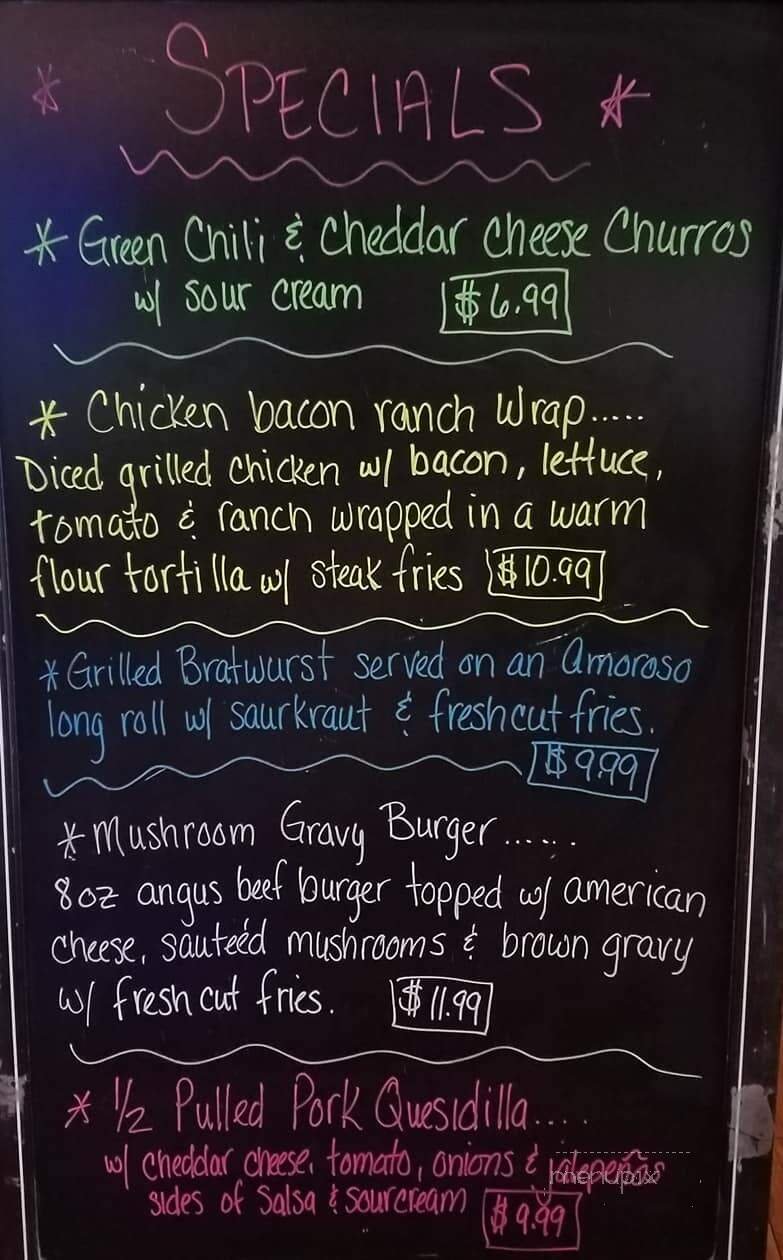 * SPECIALS *
* Green Chili & Cheddar Cheese Churros
w/ sour cream $6.99
* Chicken bacon ranch Wrap.....
Diced grilled chicken w/ bacon, lettuce,
tomato & ranch wrapped in a warm
flour tortilla w/ steak fries $10.99
* Grilled Bratwurst served on an Amoroso
long roll w/ saurkraut & fresh cut fries.
$9.99
* Mushroom Gravy Burger......
8oz angus beef burger topped w/ american
cheese, sauteéd mushrooms & brown gravy
w/ fresh cut fries. $11.99
* 1/2 Pulled Pork Quesidilla....
w/ cheddar cheese, tomato, onions & jalepeños
menupix
sides of Salsa & sourcream $9.99